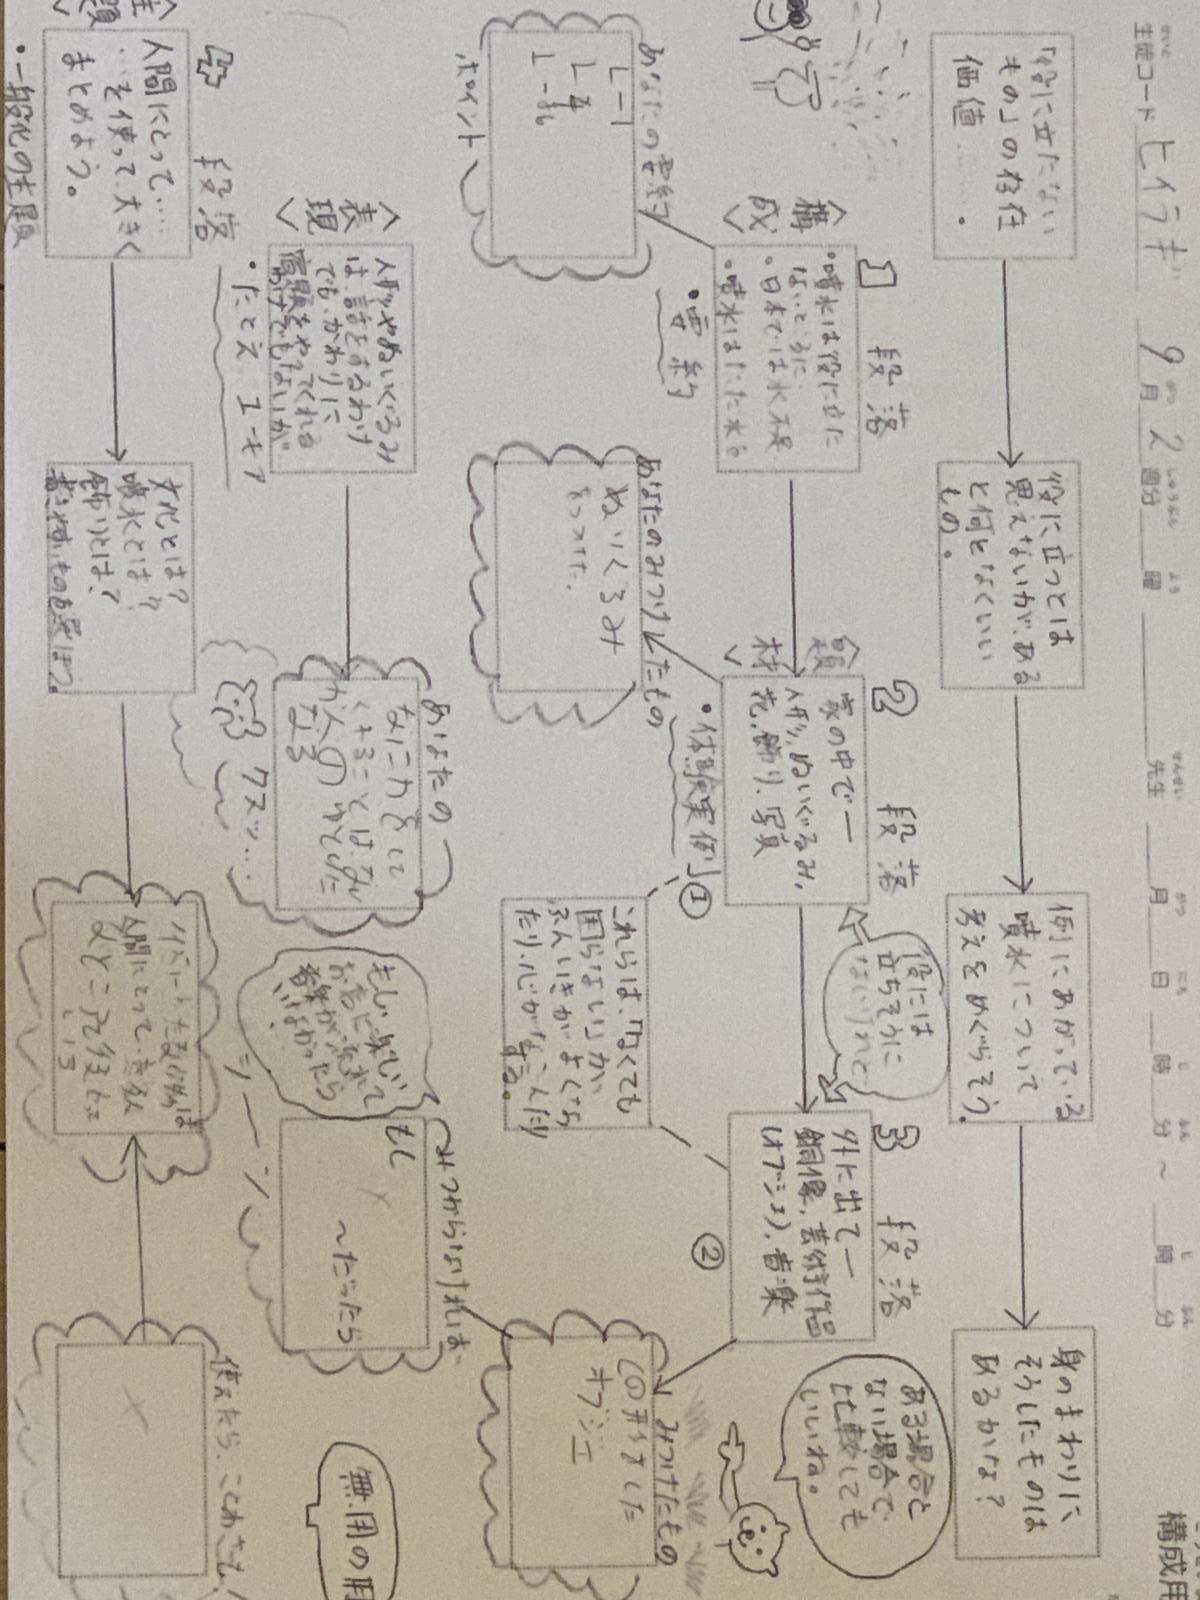 生徒コード ヒイラギ 9月2週分 曜 先生 月 日 時 分 〜 時 分
せいと
がつ
しゅうぶん
よう
せんせい
がつ
にち
じ
ふん
じ
ふん
構成用
「役に立たない
もの」の存在
価値……。
役に立つとは
思えないが、ある
と何となくいい
もの。
例にあがっている
噴水について
考えをめぐらそう。
身のまわりに
そうしたものは
あるかな?
1 段落
〈構成〉
・噴水は役に立た
ないところに
・日本では水不足
・噴水はただ水を
・要約
あなたの要約
ポイント
2 段落
〈題材〉
家の中で―
人形、ぬいぐるみ、
花、飾り、写真
・体験実例①
あなたのみつけたもの
ぬいぐるみ
役には
立ちそうに
ないけれど…
これらは、「なくても
困らない」が、
ふんいきがよくなっ
たり、心がなごんだり
する。
3 段落
外に出て―
銅像、芸術作品
(オブジェ)、音楽
②
ある場合と
ない場合で
比較しても
いいね。
みつけたもの
の形をした
オブジェ
みつからなければ、
もし
〜だったら
もし、楽しい
お店に流れて
音楽が
いなかったら
シーン
〈表現〉
人形やぬいぐるみ
は、話をするわけ
でも、かわりに
宿題をやってくれる
わけでもないが
・たとえ
あなたの
クスッ…
無用の用
4 段落
〈主題〉
人間にとって……
…を使って、大きく
まとめよう。
・一般化の主題
文化とは?
噴水とは?
飾りとは?
書きやすいものを選ぼう。
人間にとって
使えたら、ことわざも!